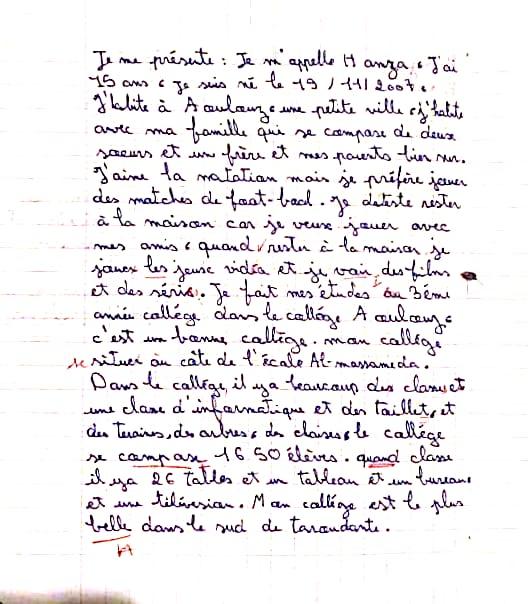 Je me présente : Je m'appelle Hamza, J'ai
15 ans, je suis né le 19/11/2007.
J'habite à Aoulouz, une petite ville, j'habite
avec ma famille qui se compase de deux
soeurs et un frère et mes parents bien sur.
J'aime la natation mais je préfère jouer
des matches de foot-bacl. Je deteste rester
à la maison car je veux jouer avec
mes amis, quand rester à la maison je
jouex les jeuse vidéa et je vair des films
et des séris. Je fait mes études au 3émé
année collége dans le collége Aoulouz,
c'est un banne collège. mon collége
se situer au câte de l'école Al-massameda.
Dans le collége, il ya beaucoup des classe et
une classe d'informatique et des taillet, et
des teraires, des arbres, des claises, le collége
se campase 1650 éléves. quand classe
il ya 26 tables et un tableau et un bureau
et une télévesian. Mon collége est le plus
belle dans le sud de taroudante.
H